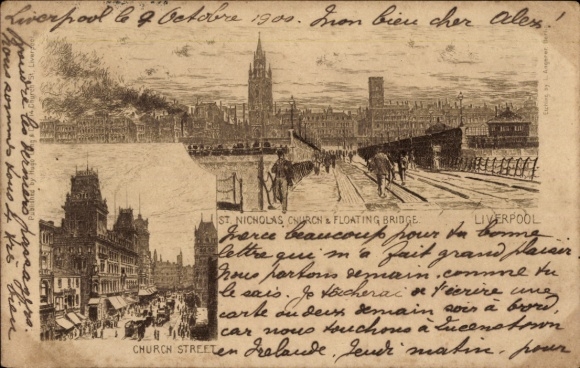 Liverpool le 9 Octobre 1900. Mon bieu cher Alex!
ST NICHOLAS CHURCH & FLOATING BRIDGE.
LIVERPOOL
CHURCH STREET
Merce beaucoup pour ta bonne
lettre qui m'a fait grand plaisir.
Nous partons demain, comme tu
le sais. Je tâcherai de t'écrire une
carte ou deux demain soir à bord,
car nous touchons à Queenstown
en Irelande, Jeudi matin, pour
prendre les derniers passagers.
Nous sommes tous t. très bien
Published by Hugo